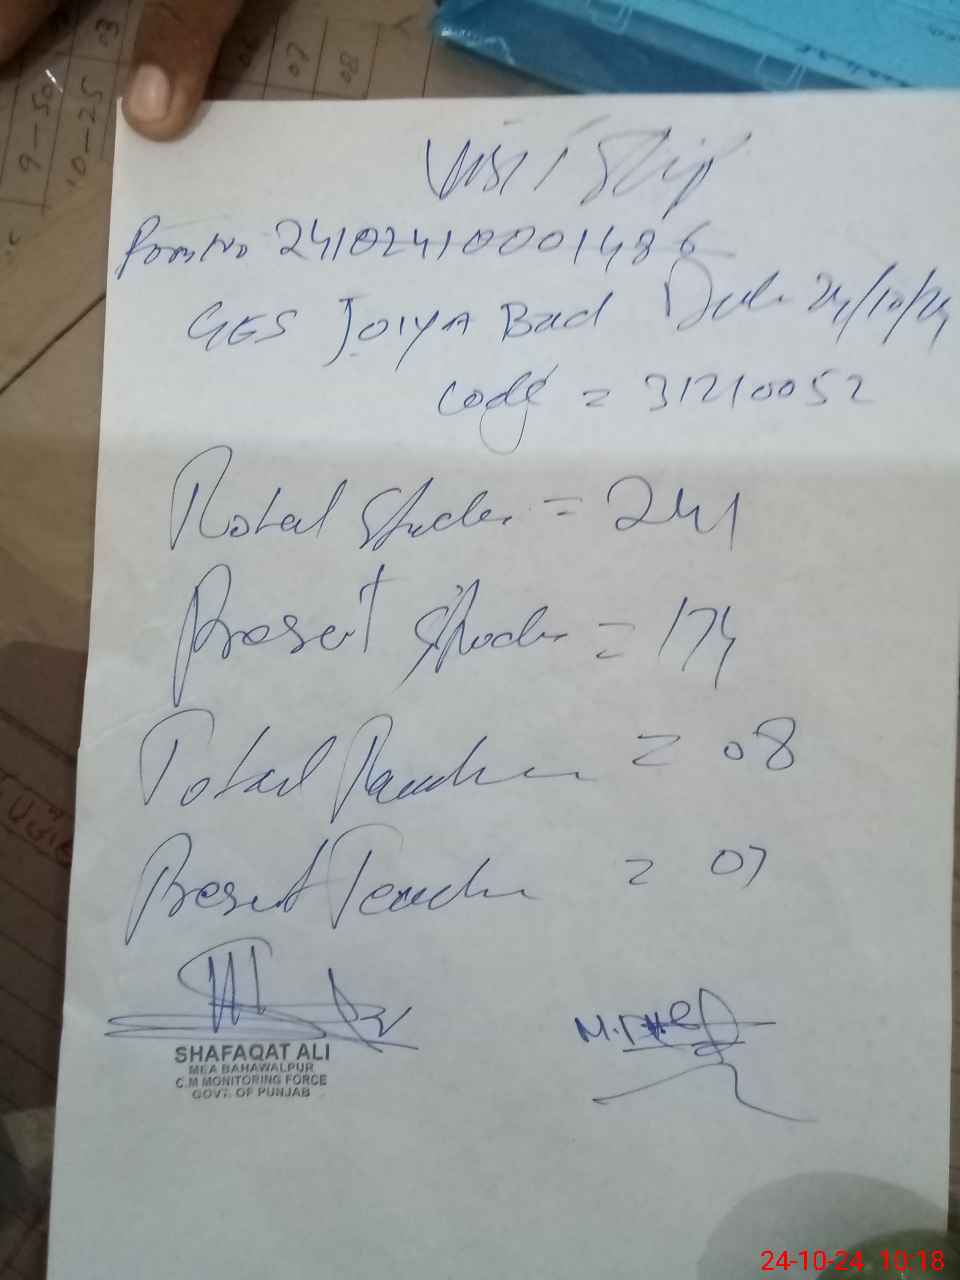 Visit Slip
Form No 24102410001486
GES Joiya Bad Date 24/10/24
Code = 31210052
Total Studen = 241
Present Studen = 174
Total Teacher = 08
Present Teacher = 07
SHAFAQAT ALI
MEA BAHAWALPUR
C.M MONITORING FORCE
GOVT. OF PUNJAB
9-50
10-25 03
07
08
24-10-24 10:18